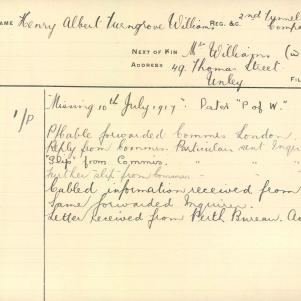 NAME Henry Albert Turngrove Williams REG. &C. 2nd Tunnel
Compa
NEXT OF KIN Mrs Williams (w
ADDRESS 49 Thomas Street
Unley FIL
"Missing 10th July 1917". Later "P of W."
1/P
P/Cable forwarded Commrs London.
Reply from Commrs. Particulars sent Inqui
"Slip" from Commrs. " "
Further "slip" from Commrs " "
Cabled information received from
Same forwarded Inquirer.
Letter received from Perth Bureau.